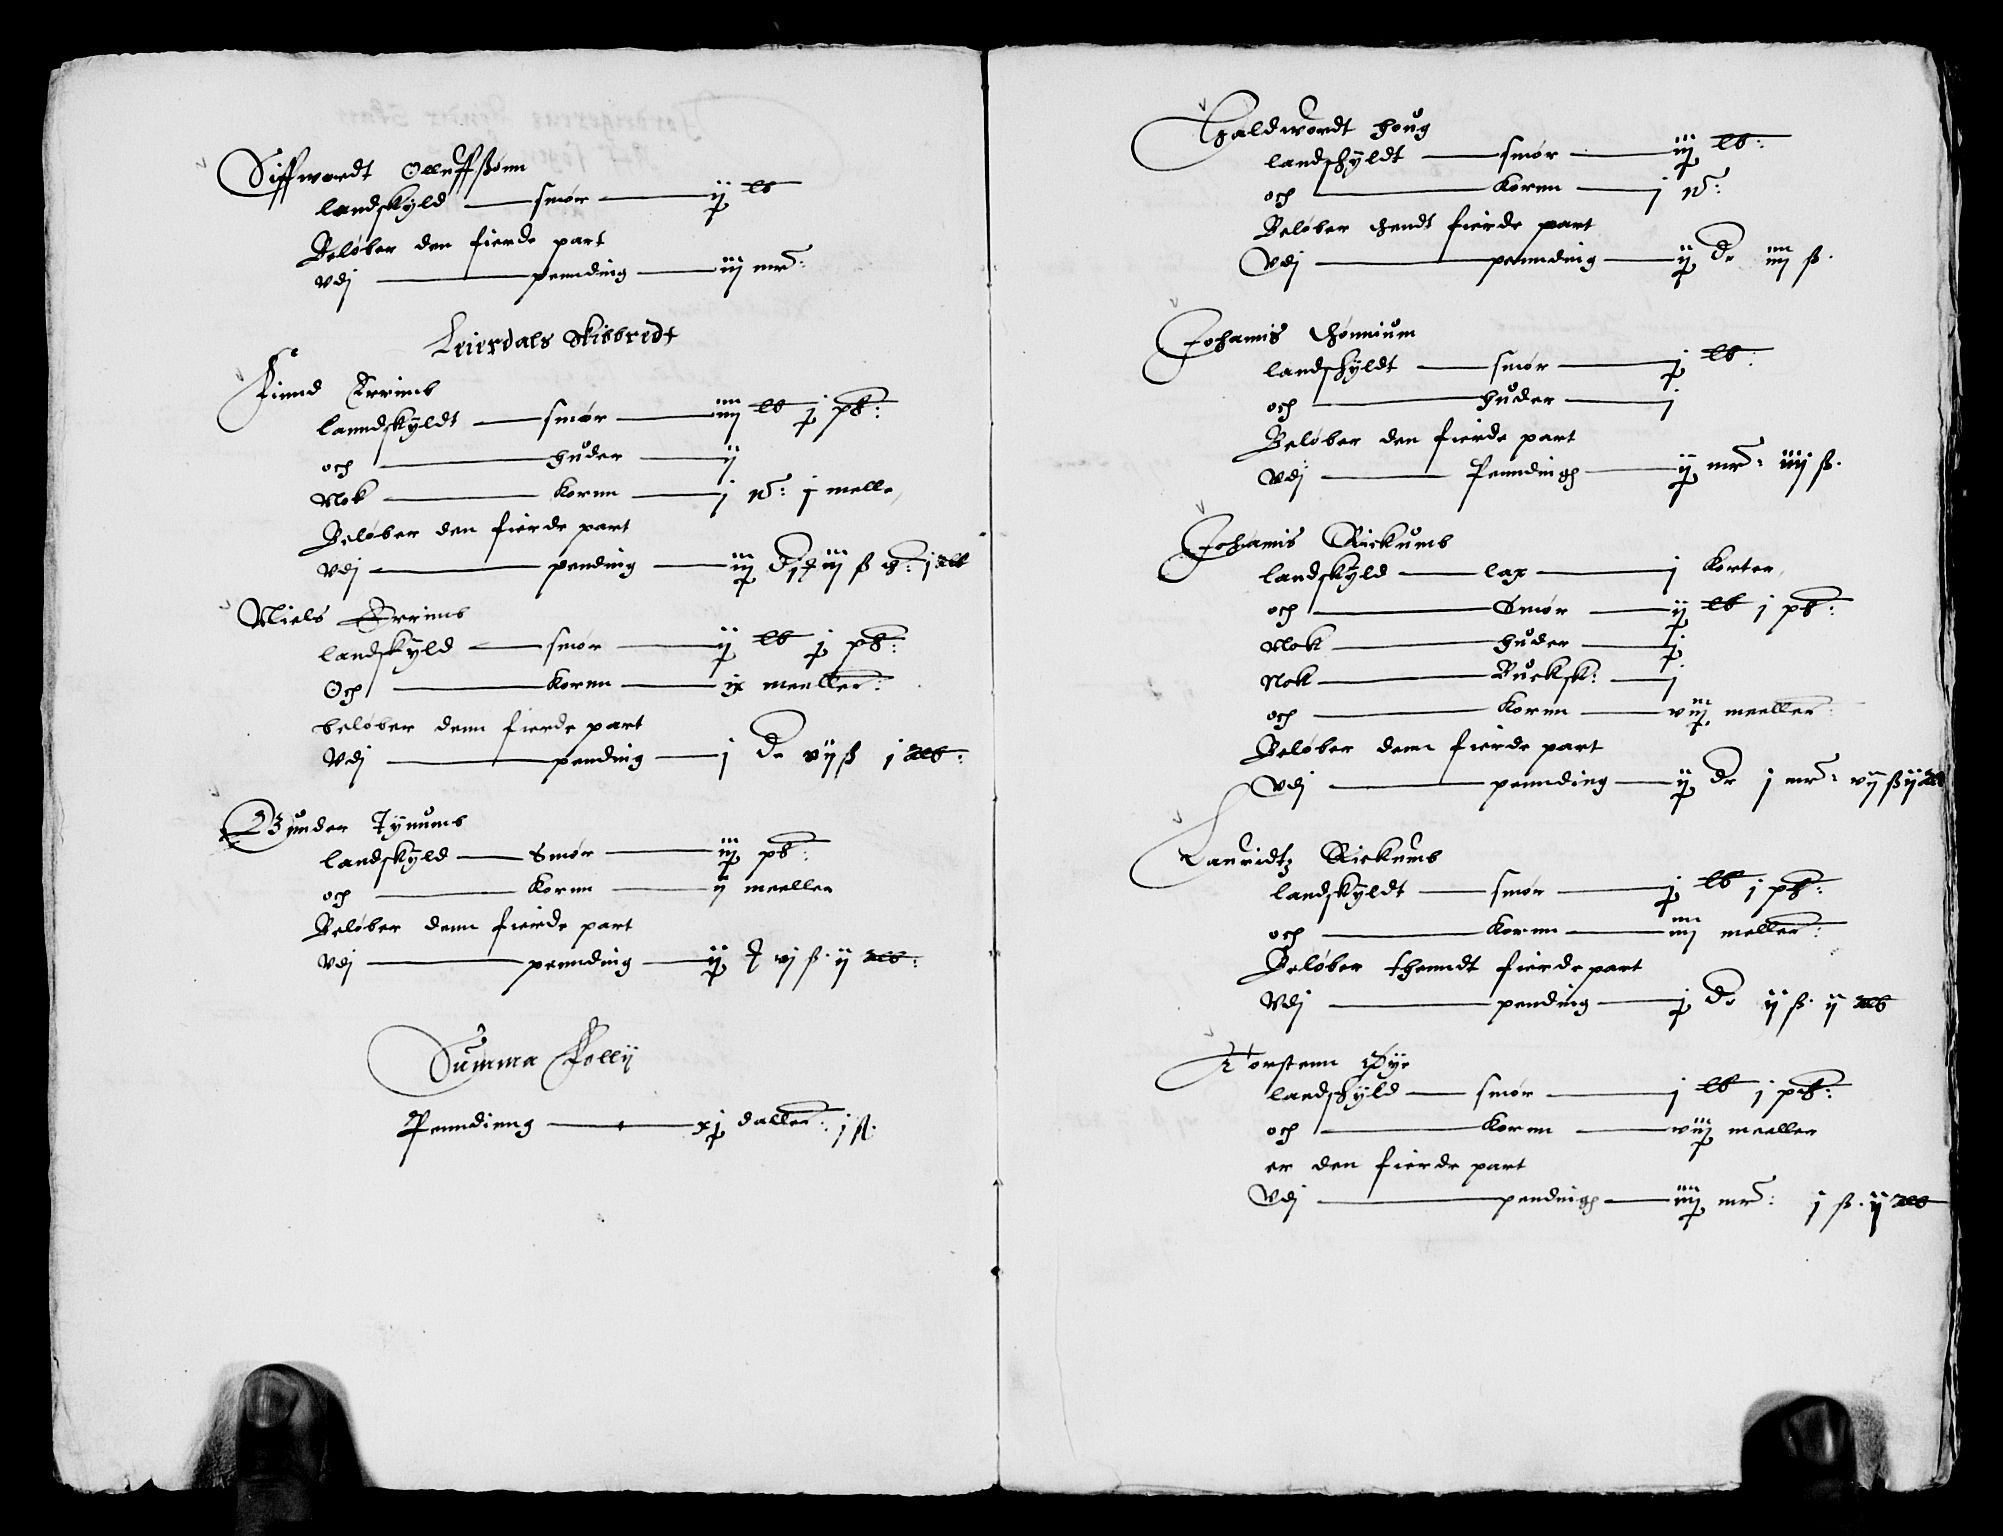 Siffwordt Olluffßønn
landskyld — smør — ij lb
Beløber den fierde part
Vdj — penndinng — iij mr:
Leierdals Skibbredt
Finnd Errims
lanndskyldt — smør — iiij lb j pb:
och — huder — ij
Nok — Kornn — j n: j melle
Beløber den fierde part
Vdj — pending — iij D j iij ß j alb
Niels Errims
landskyld — smør — ij lb j pb:
Och — Kornn — ix meeller:
beløber denn fierde part
Vdj — pending — j Dr vij ß j alb:
Gunder Tynums
landskyld — Smør — iij pb:
och — Kornn — ij meeller
Beløber denn fierde part
Vdj — pennding — ij vj ß. ij alb:
Summa Folly
Penndieng — xj daller: j ß.
Haldwordt Houg
landskyldt — smør — iij lb:
och — Kornn — j n:
Beløber thendt fierde part
Vdj — penndinig — ij Dr iiij ß.
Johanis Thønnium
landskyldt — smør — j lb:
och — huder — j
Beløber den fierde part
Vdj — Penndingh — ij mr: iiij ß.
Johanis Rickums
landskyld — lax — j Korter
och — Smør — ij lb j pb:
Nok — huder — j
Nok — Bucksk: — j
och — Kornn — viij meeller
Beløber denn fierde part
Vdj — pennding — ij dr j mr: vij ß ij alb
Lauridtz Rickums
landskyldt — smør — j lb j pb:
och — Kornn — iiij meller:
Beløber thenndt fierde part
Vdj — pending — j Dr ij ß. ij alb
Torstenn Øye
landskyld — smør — j lb j pb:
och — Kornn — viij meeller
er den fierde part
Vdj — pendingh — iiij mr: j ß. ij alb